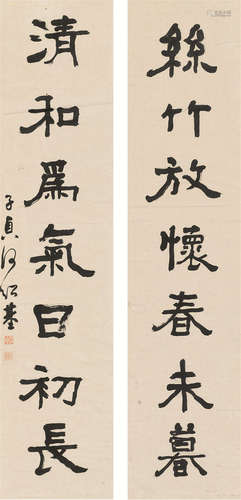 絲竹放懷春未暮
清和為氣日初長
子貞何紹基